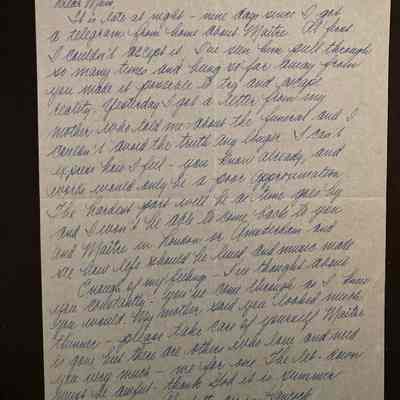 Dear Mam
It is late at night - nine days since I got
a telegram from home about Maitre. At first
I couldn't accept it. I've seen him pull through
so many times and being so far away from
you make it possible to try and escape
reality. Yesterday I got a letter from my
mother who told me about the funeral and I
couldn't avoid the truth any longer. I can't
express how I feel - you know already, and
words would only be a poor approximation.
The hardest part will be as time goes by
and I won't be able to come back to you
and Maitre in London or Amsterdam and
see how life should be lived and music made
Enough of my feelings - I've thought about
you constantly - you've come through as I knew
you would. My mother said you looked much
thinner - please take care of yourself Maitre
is gone but there are others who love and need
you very much - me for one. The let-down
must be awful - thank God it is summer